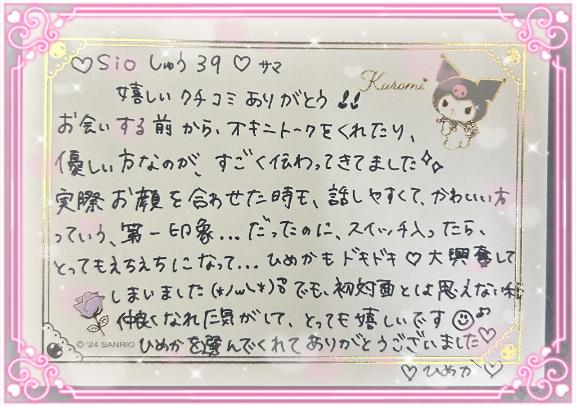 ♡Sio しゅう39♡サマ
Kuromi
嬉しいクチコミありがとう!!
お会いする前から、オキニトークをくれたり、
優しい方なのが、すごく伝わってきてました✨
実際お顔を合わせた時も、話しやすくて、かわいい方
っていう、第一印象...だったのに、スイッチ入ったら、
とってもえちえちになって...ひめかもドキドキ♡大興奮して
しまいました(*ノωヽ*)でも、初対面とは思えない程
仲良くなれた気がして、とっても嬉しいです☺♪
ひめかを選んでくれてありがとうございました♡
© '24 SANRIO
♡ひめか♡